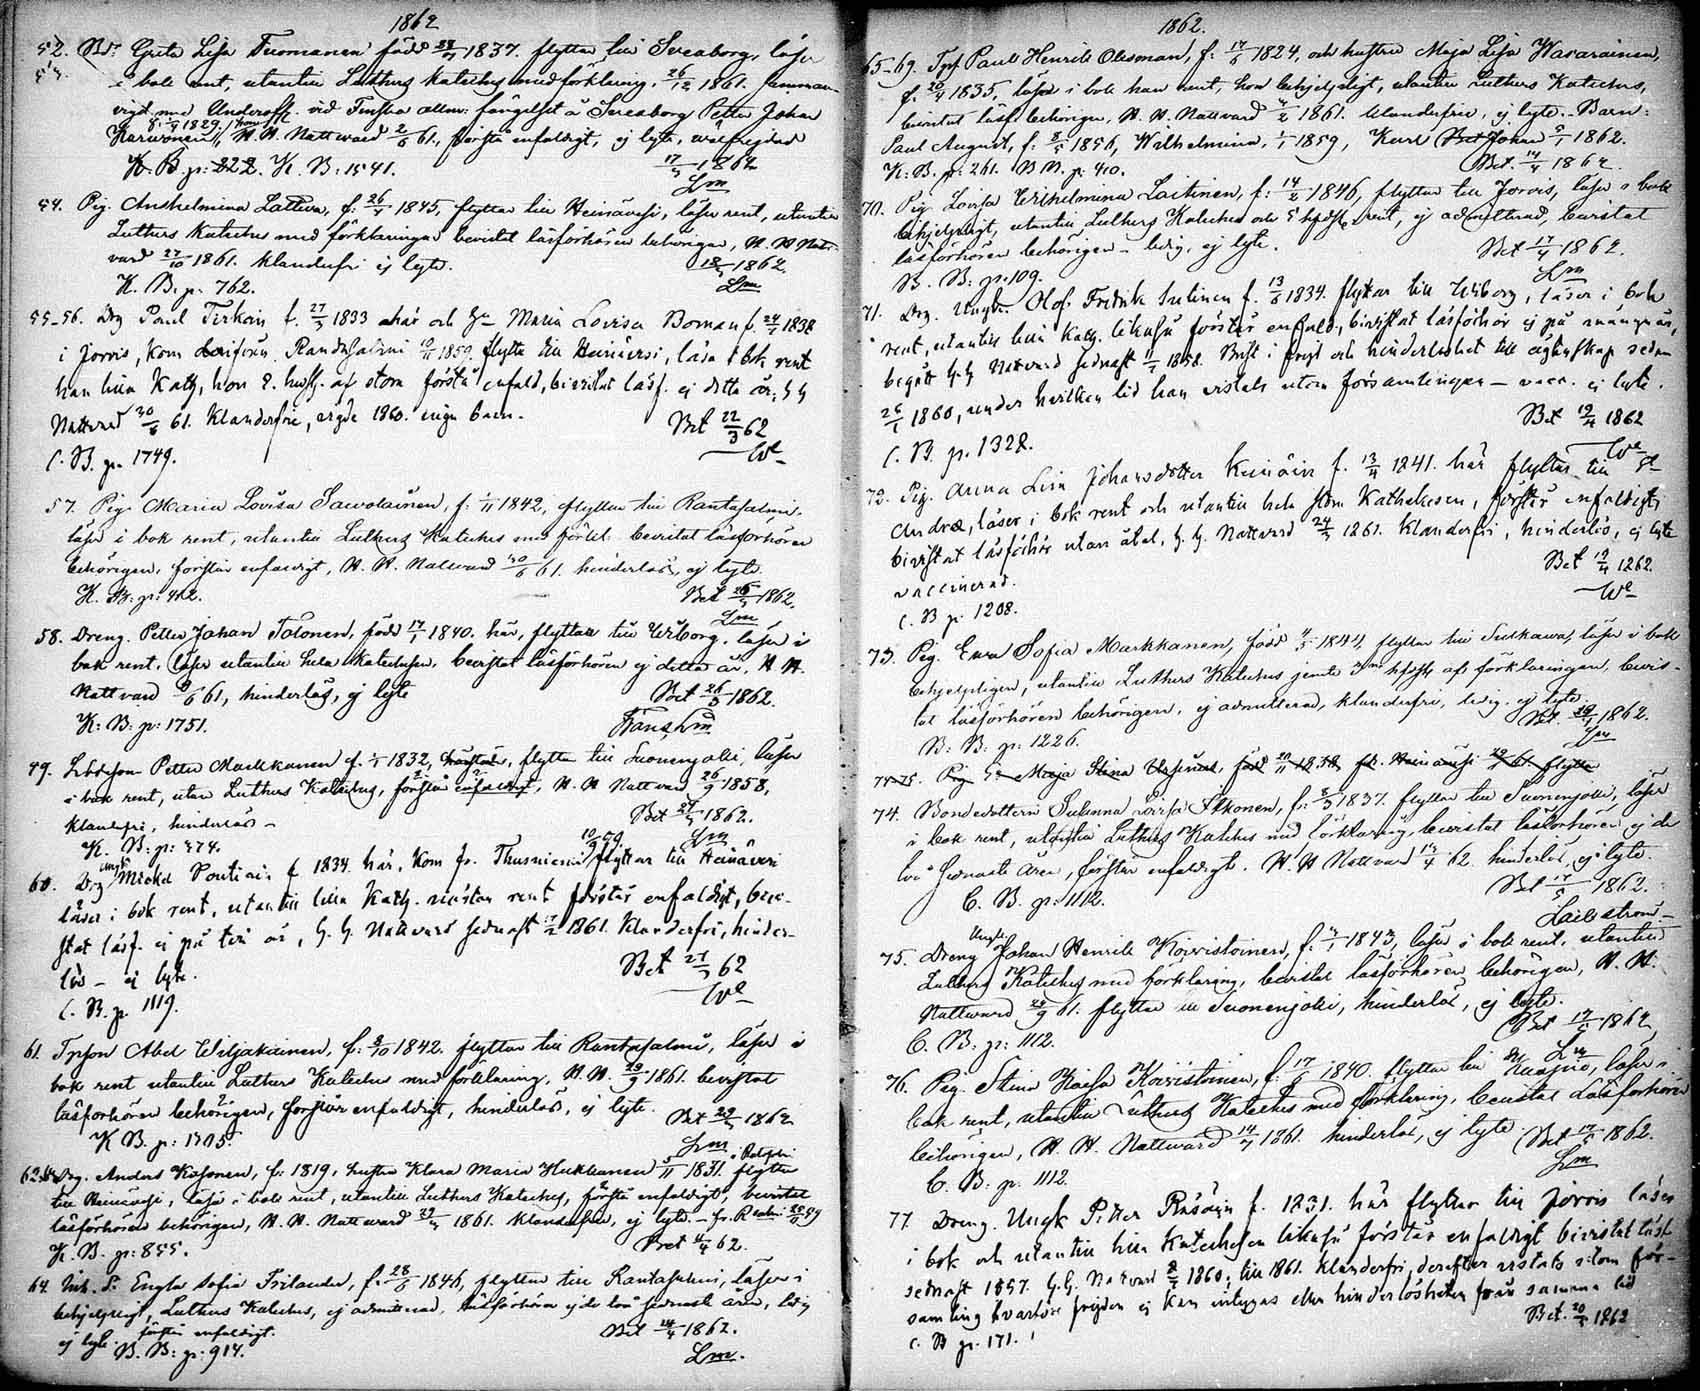 1862
52. Greta Lisa Tuomanen född 1837. flyttar till Sveaborg, läser
i bok rent, utantill Luthers Kateches med förklaring, 26/12 1861. samman
vigd med Underoff. vid Finska fängelset å Sveaborg Petter Johan
Karvonen, H. H. Nattvard 61, förstår enfaldigt, ej lyte,
K. B. p: 222. K. B: 1541. 17/3 1862
Lm
54. Pig. Anshelmina f: 26/4 1845, flyttar till Heinävesi, läser rent, utantill
Luthers Kateches med förklaringar bevistat läsförhören behörigen, H. H. Natt-
vard 27/10 1861. klanderfri ej lyte. 18/3 1862.
K. B. p. 762. Lm
55-56. Drg Paul Tirkoin f. 27/3 1833 här och Hu Maria Lovisa Boman f. 1838
i Jorois, kom härifrån Randasalmi 10/11 1859, flytta till Heinävesi, läsa i bok rent
han lilla Kath, hon 2. hufst. af stora förstå enfald, bevistat läsf. ej detta år, H H
Nattvard 30/6 61. Klanderfria, vigde 1860. inga barn. Bet 22/3 62
C. B. p. 1749. We
57. Pig. Maria Lovisa Sawolainen, f: 1/11 1842, flyttar till Rantasalmi,
läser i bok rent, utantill Luthers Kateches med förkl. bevistat läsförhören
behörigen, förstår enfaldigt, H. H. Nattvard 30/6 61. hinderlös, ej lyte.
K. B: p: 402. Bet 26/3 1862.
Lm
58. Dreng. Petter Johan Tolonen, född 17/1 1840. här, flyttar till Wiborg, läser i
bok rent, läser utantill hela Katechesen, bevistat läsförhören ej detta år, H. H.
Nattvard 9/6 61, hinderlös, ej lyte Bet 26/3 1862.
K: B: p: 1751. Frans Lm
59. Petter Markkanen f. 1/1 1832, flyttar till Suonenjoki, läser
i bok rent, utan Luthers Kateches, förstår enfaldigt, H. H Nattvard 26/9 1858,
klanderfri, hinderlös Bet 27/3 1862.
K. B: p: 474. Lm
60. Drg Ungk Mickel Pontinen f 1834 här, kom fr. Thusniemi 10/9 59 flyttar till Heinävesi
läser i bok rent, utantill lilla Kath. nästan rent förstår enfaldigt, bevi-
stat läsf. ej på två år, H. H. Nattvard sednast 17/2 1861. Klanderfri, hinder-
lös – ej lyte. Bet 27/3 62
C. B. p. 1119. We
61. Tpson Abel Wiljakainen, f: 9/10 1842. flyttar till Rantasalmi, läser i
bok rent utantill Luthers Kateches med förklaring, H. H. 29/9 1861 bevistat
läsförhören behörigen, förstår enfaldigt, hinderlös, ej lyte. Bet 29/3 1862
K B. p: 1305. Lm
Drg. Anders Kosonen, f: 1819, hustru Klara Maria Hukkanen 5/11 1831. flytta
till Heinävesi, läsa i bok rent, utantill Luthers Kateches, förstå enfaldigt, bevistat
läsförhören behörigen, H. H. Nattvard 29/9 1861. klanderfria, ej lyte.
K. B. p: 855. Bet 4/4 62.
64. Engla Sofia Frilander, f: 28/8 1846, flyttar till Rantasalmi, läser i
behjelpligt, Luthers Kateches, ej admitterad, läsförhören ej de två sednaste åren, ledig
ej lyte. förstår enfaldigt. Bet 14/4 1862.
B. B: p. 917. Lm.
1862.
65-69. Tpf Paul Henrik Olesman, f: 17/6 1824, och hustru Maja Lisa Wasarainen,
f. 20/4 1835, läsa i bok han rent, hon behjelpligt, utantill Luthers Kateches,
bevistat läsf. behörigen, H. H. Nattvard 4/2 1861. klanderfria, ej lyte. Barn:
Paul August, f: 8/5 1856, Wilhelmina, 1/1 1859, Karl Johan 9/1 1862.
K: B. p: 261. B B. p: 410. Bet. 14/4 1862.
70. Pig Lovisa Wilhelmina Laitinen, f: 14/2 1846, flyttar till Jorois, läser i bok
behjelpligt, utantill Luthers Kateches och 5 hufst. rent, ej admitterad, bevistat
läsförhören behörigen – ledig, ej lyte. Bet 17/4 1862.
B. B: p: 109. Lm
71. Drg. Ungk. Olof Fredrik Sutinen f. 13/6 1834. flyttar till Wiborg, läser i bok
rent, utantill lilla Kath. likaså förstår enfald., bevistat läsförhör ej på många år,
begått H. H. Nattvard sednast 11/7 1858. Brist i frejd och hinderlöshet till äktenskap sedan
26/1 1860, under hvilken tid han vistats utom församlingen – vacc. ej lyte.
Bet 19/4 1862
C. B. p. 1328. We
72. Pig. Anna Lisa Johansdotter Keinäin f. 13/4 1841. här flyttar till St
Andræ, läser i bok rent och utantill hela stora Kathekesen, förstår enfaldigt,
bevistat läsförhör utan åtal, H. H. Nattvard 24/3 1861. Klanderfri, hinderlös, ej lyte
vaccinerad. Bet 19/4 1862.
C. B p. 1208. We
73. Pig. Eva Sofia Markkanen, född 4/5 1844, flyttar till Sulkava, läser i bok
behjelpligen, utantill Luthers Kateches jemte 3ne hufst. af förklaringen, bevis-
tat läsförhören behörigen, ej admitterad, klanderfri, ledig, ej lyte.
B: B: p: 1226. Bet. 29/4 1862.
Lm
74-75. Pig Maja Stina född 20/11 1838, fr. Heinävesi flytta
74. Bondedottern Susanna Lovisa Itkonen, f: 8/3 1837. flyttar till Suonenjoki, läser
i bok rent, utantill Luthers Kateches med förklaring, bevistat läsförhören ej de
två sednaste åren, förstår enfaldigt. H. H Nattvard 13/4 62. hinderlös, ej lyte.
C. B. p: 1112. Bet 17/5 1862.
75. Dreng Ungk. Johan Henrik Koivistoinen, f: 4/1 1843, läser i bok rent, utantill
Luthers Kateches med förklaring, bevistat läsförhören behörigen, H. H.
Nattvard 29/9 61. flyttar till Suonenjoki, hinderlös, ej lyte.
C. B: p: 1112. Bet 17/5 1862
Lm
76. Pig. Stina Kaisa Koivistoinen, f: 17/8 1840. flyttar till Kuopio, läser i
bok rent, utantill Luthers Kateches med förklaring, bevistat Läsförhören
behörigen, H. H. Nattvard 14/7 1861. hinderlös, ej lyte. Bet 17/5 1862.
C. B: p. 1112. Lm
77. Dreng. Ungk Petter Räsäin f. 1831. här flyttar till Jorois läser
i bok och utantill lilla Katechesen likaså förstår enfaldigt bevistat läsf.
sednast 1857. H. H. Nattvard 1860; till 1861. klanderfri, derefter vistats utom för-
samling hvarföre frejden ej kan intygas eller hinderlösheten från samma tid
C. B p. 171. Bet. 20/5 1862